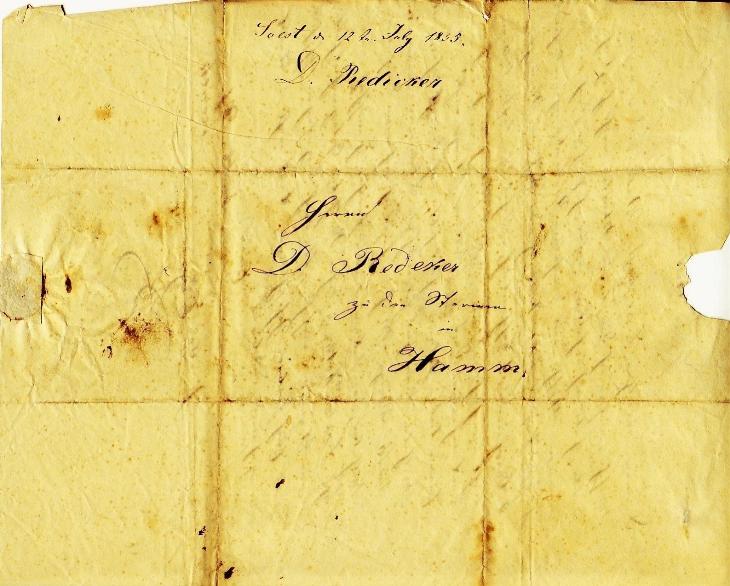 Soest d 12 tn July 1835.
D. Redicker
Herrn
D. Redeker
zu den Sternen
in
Hamm.